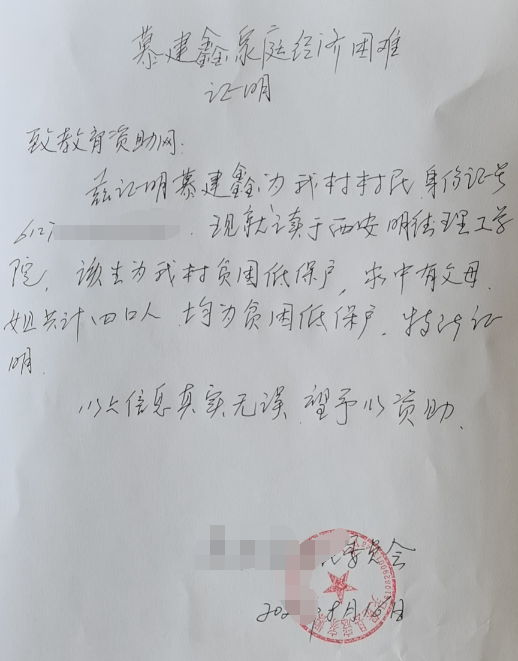 慕建鑫家庭经济困难
证明
致教育资助网:
兹证明慕建鑫为我村村民身份证号
6127 . 现就读于西安明德理工学
院, 该生为我村贫困低保户, 家中有父母.
姐共计四口人 均为贫困低保户. 特此证
明.
以上信息真实无误. 望予以资助.
委员会
202 年8月15日